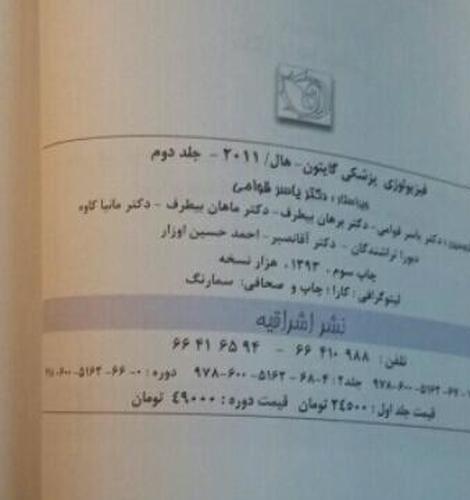 فیزیولوژی پزشکی گایتون - هال / ۲۰۱۱ - جلد دوم
ویراستار: دکتر یاسر قوامی
دکتر یاسر قوامی - دکتر برهان بیطرف - دکتر ماهان بیطرف - دکتر مانیا کاوه
دورا تراشندگان - دکتر آقانصیر - احمد حسین اوزار
چاپ سوم، ۱۳۹۳، هزار نسخه
لیتوگرافی: کارا؛ چاپ و صحافی: سمارنگ
نشر اشراقیه
تلفن: ۹۸۸ ۴۱۰ ۶۶ - ۹۴ ۶۵ ۴۱ ۶۶
جلد۲: ۴-۶۸-۵۱۶۲-۶۰۰-۹۷۸ دوره: ۰-۶۶-۵۱۶۲-۶۰۰
قیمت جلد اول: ۲۴۵۰۰ تومان قیمت دوره: ۴۹۰۰۰ تومان